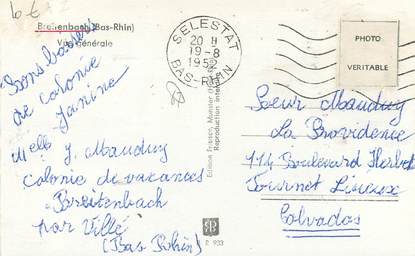 6 €
Breitenbach (Bas-Rhin)
Vue générale
SELESTAT
20 H
19-8
BAS-RHIN
PHOTO
VERITABLE
Bons baisers
de colonie
Janine
Melle J. Mauduy
Colonie de vacances
Breitenbach
par Villé
(Bas Rhin)
Reproduction interdite
Soeur Mauduy
La Providence
Boulevard Herbet
Fournet Lisieux
Calvados
P 933